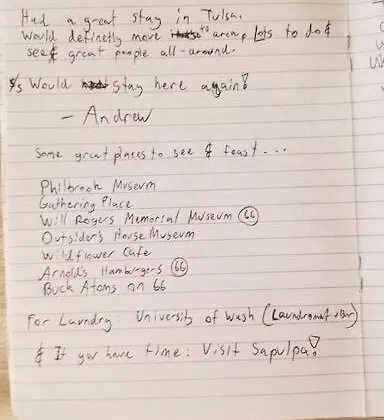 Had a great stay in Tulsa.
Would definetly move to area. Lots to do &
see & great people all-around.
5/5 Would stay here again!
- Andrew
Some great places to see & feast...
Philbrook Museum
Gathering Place
Will Rogers Memorial Museum 66
Outsiders House Museum
Wildflower Cafe
Arnold's Hamburgers 66
Buck Atoms on 66
For Laundry: University of Wash (Laundromat + Bar)
& If you have time: Visit Sapulpa!